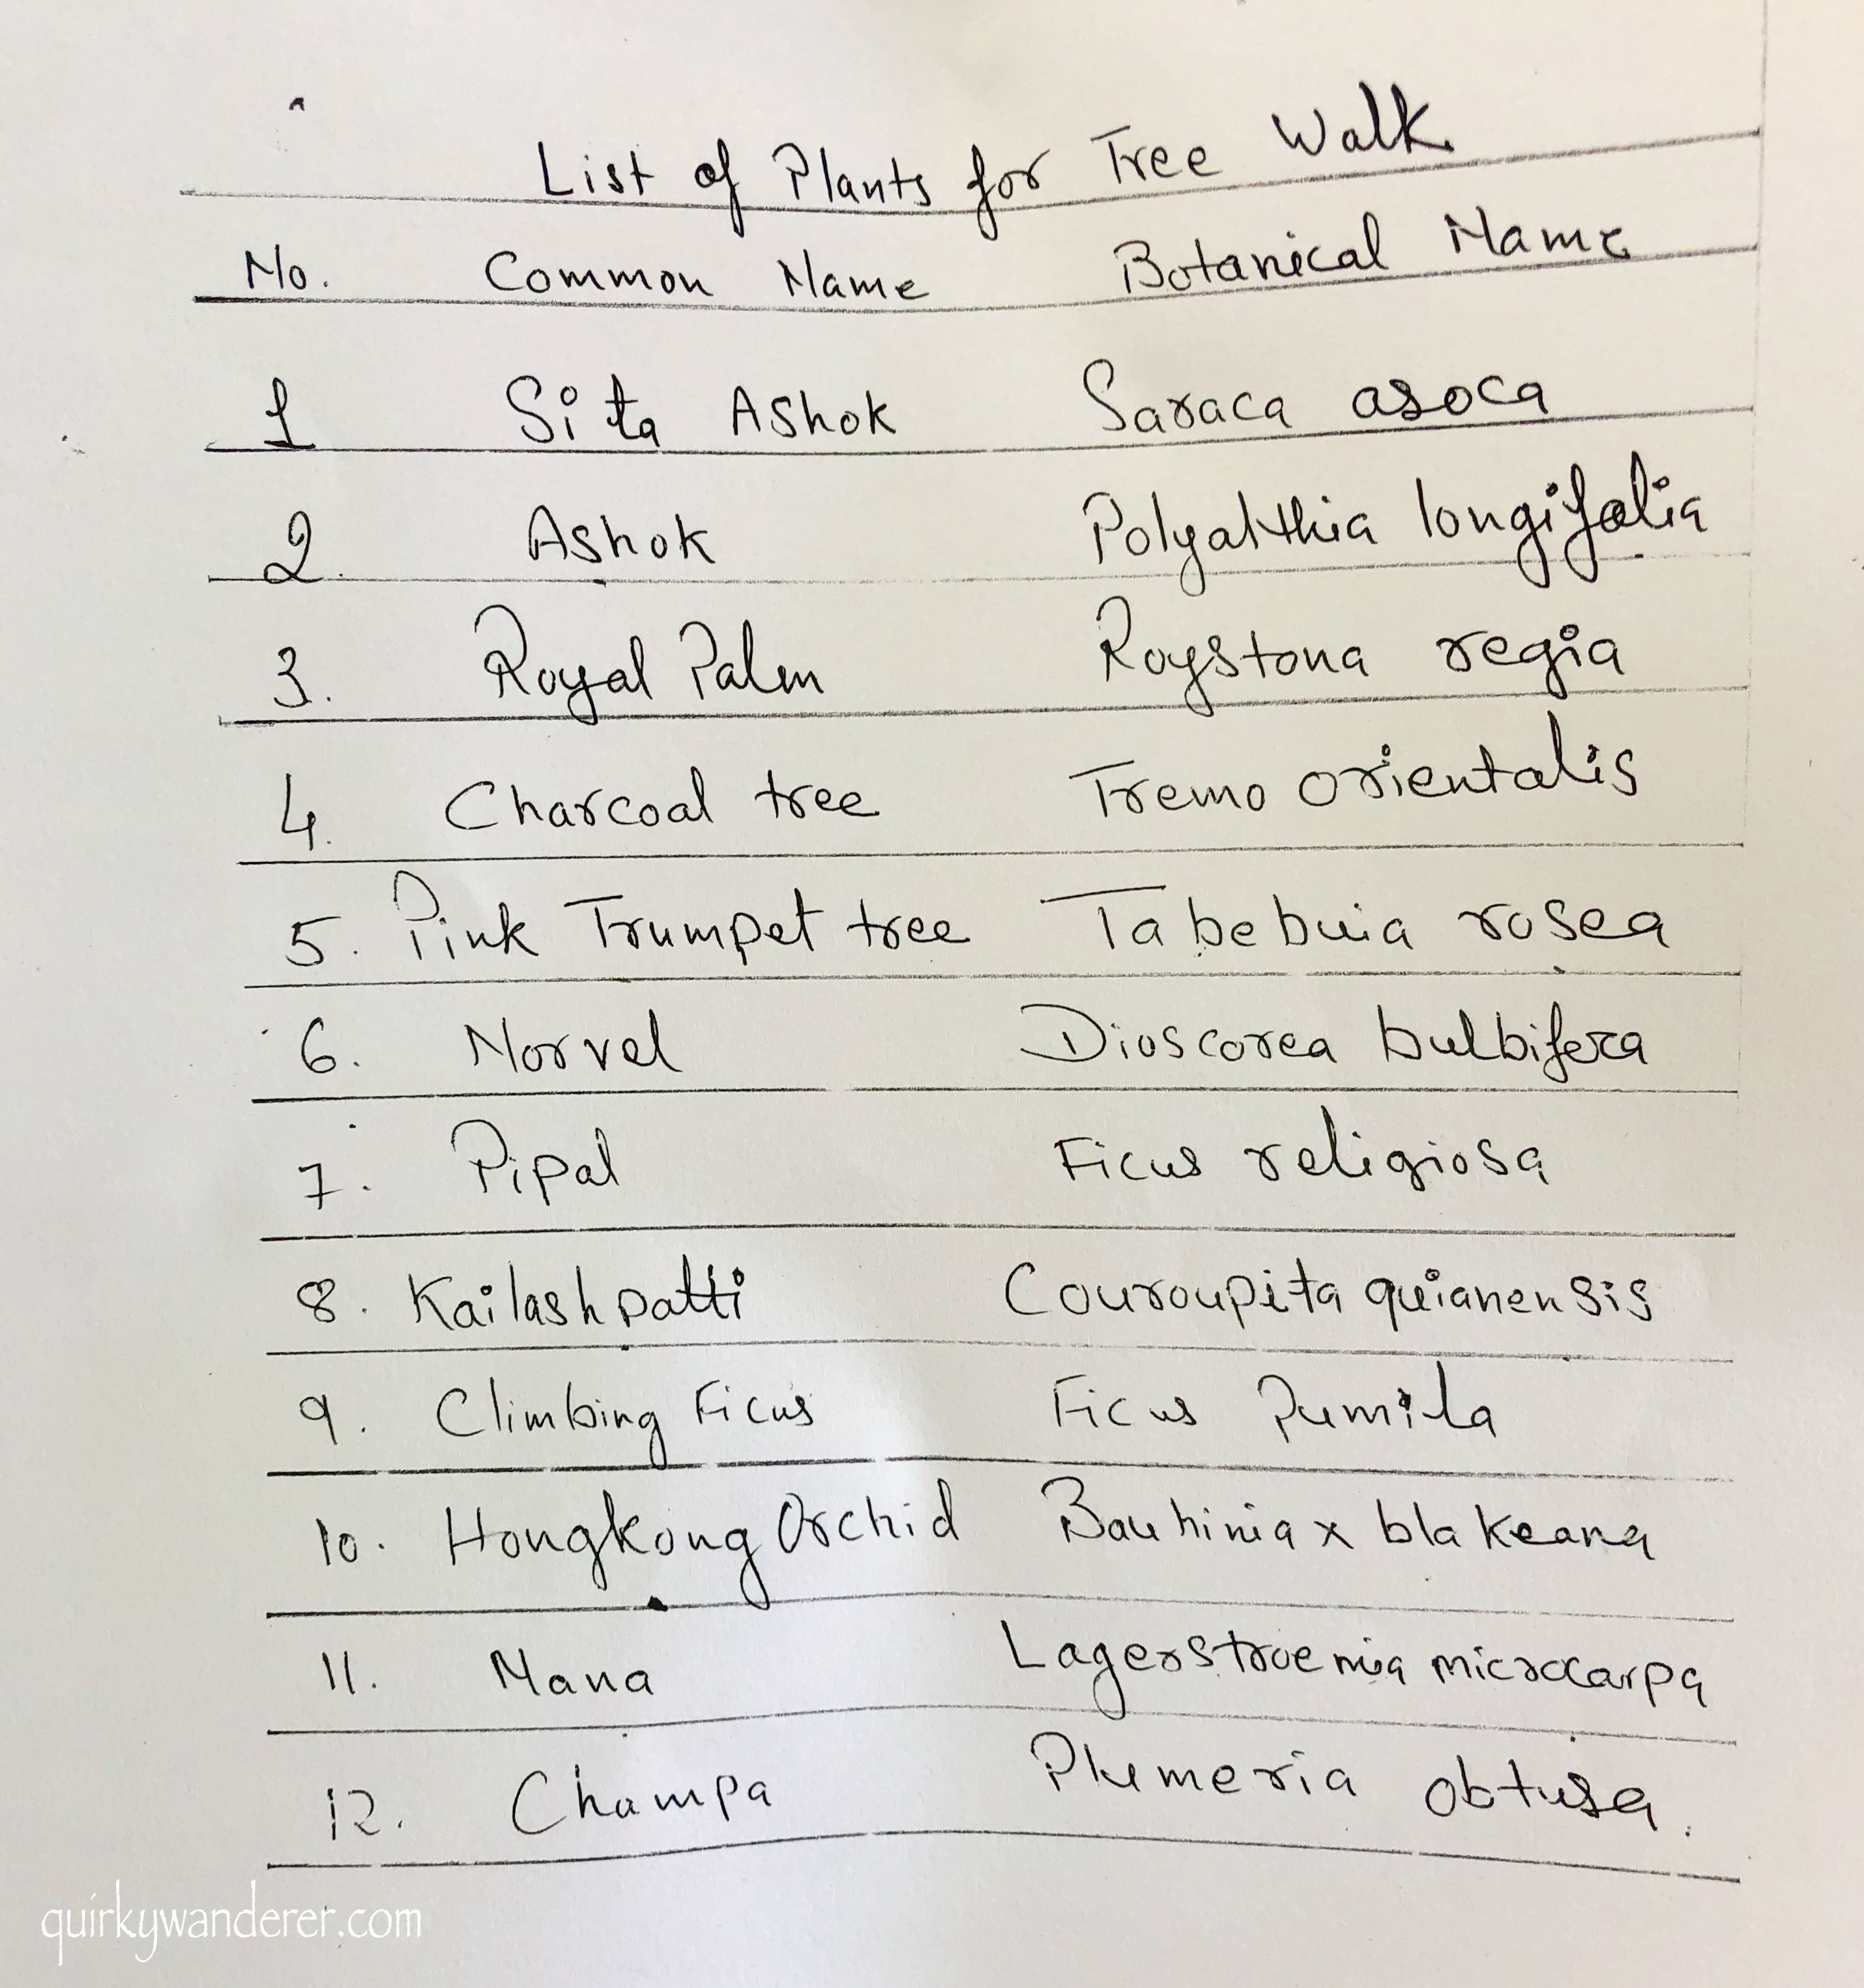 List of Plants for Tree Walk
No. Common Name Botanical Name
1 Sita Ashok Saraca asoca
2. Ashok Polyalthia longifolia
3. Royal Palm Roystona regia
4. Charcoal tree Tremo orientalis
5. Pink Trumpet tree Tabebuia rosea
6. Norvel Dioscorea bulbifera
7. Pipal Ficus religiosa
8. Kailashpatti Couroupita quianensis
9. Climbing Ficus Ficus Pumila
10. Hongkong Orchid Bauhinia x blakeana
11. Nana Lagerstroemia microcarpa
12. Champa Plumeria obtusa.
quirkywanderer.com